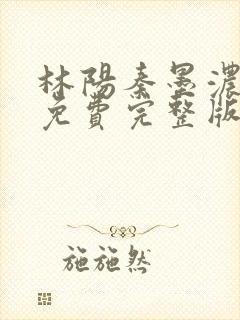 林陽秦墨濃
免費完整版
施施然